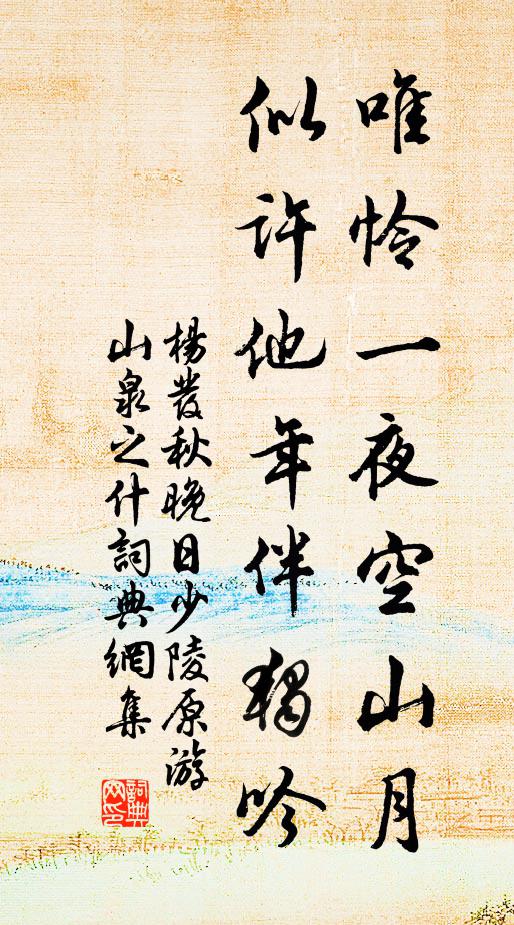 唯怜一夜空山月
似许他年伴独吟
楊發秋晚日少陵原游
山泉之什詞典網集
詞典
网印